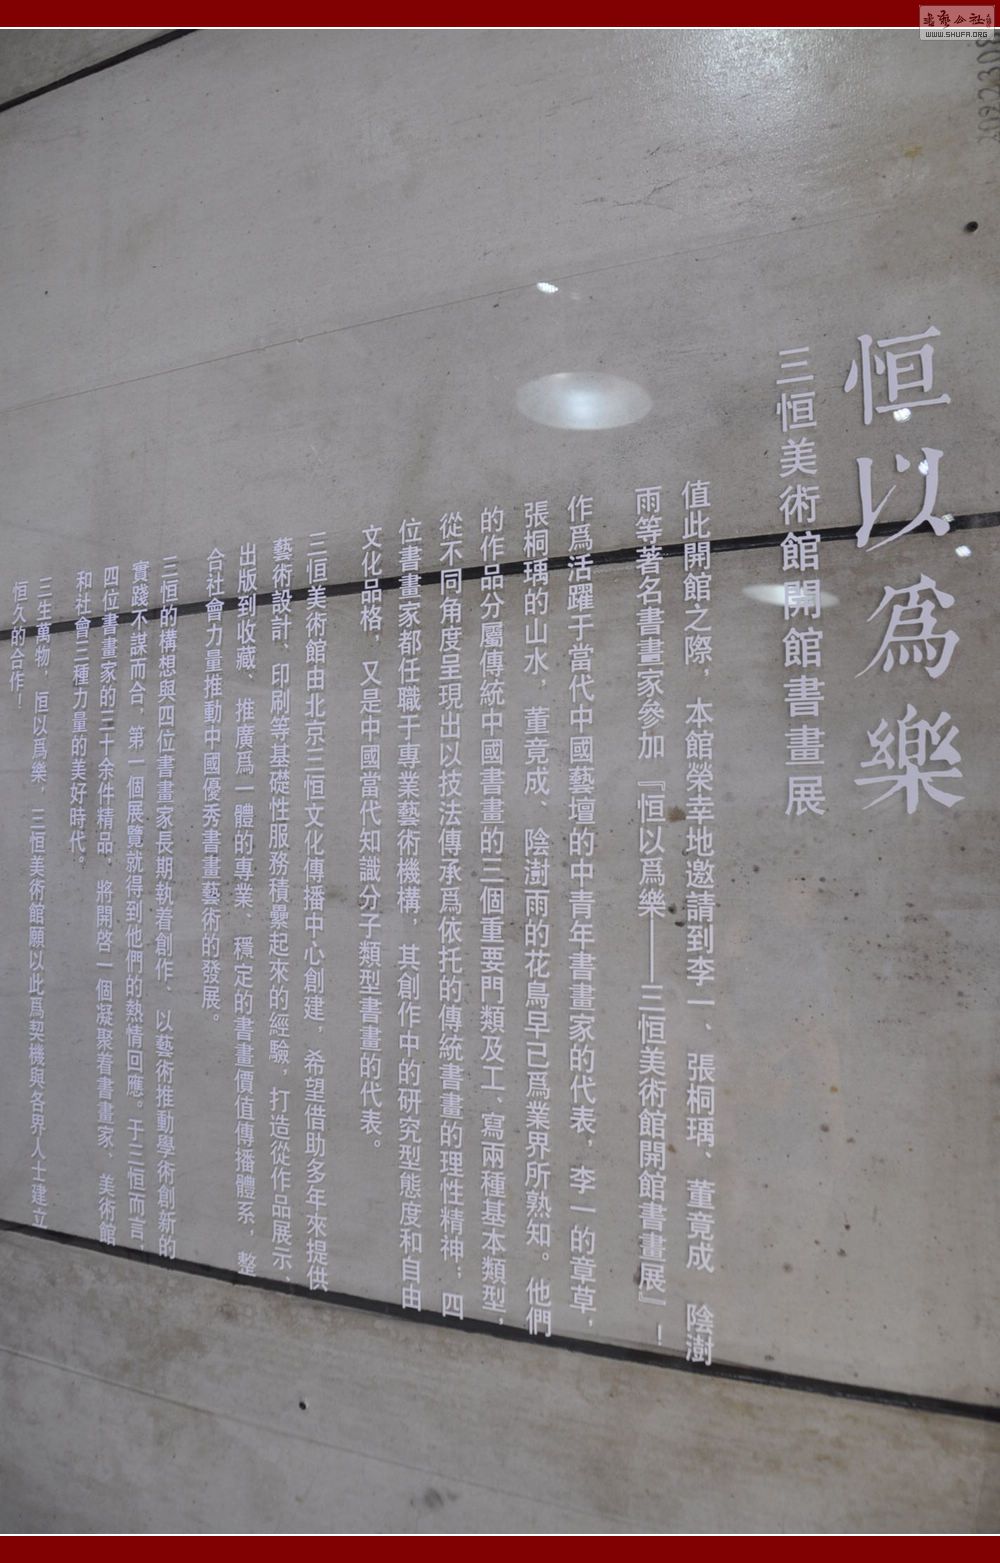 恒以爲樂
三恒美術館開館書畫展
值此開館之際，本館榮幸地邀請到李一、張桐瑀、董竟成、陰澍
雨等著名書畫家參加『恒以爲樂——三恒美術館開館書畫展』！
作爲活躍于當代中國藝壇的中青年書畫家的代表，李一的章草，
張桐瑀的山水，董竟成、陰澍雨的花鳥早已爲業界所熟知。他們
的作品分屬傳統中國書畫的三個重要門類及工、寫兩種基本類型，
從不同角度呈現出以技法傳承爲依托的傳統書畫的理性精神；四
位書畫家都任職于專業藝術機構，其創作中的研究型態度和自由
文化品格，又是中國當代知識分子類型書畫的代表。
三恒美術館由北京三恒文化傳播中心創建，希望借助多年來提供
藝術設計、印刷等基礎性服務積纍起來的經驗，打造從作品展示、
出版到收藏、推廣爲一體的專業、穩定的書畫價值傳播體系，整
合社會力量推動中國優秀書畫藝術的發展。
三恒的構想與四位書畫家長期執着創作、以藝術推動學術創新的
實踐不謀而合，第一個展覽就得到他們的熱情回應。于三恒而言，
四位書畫家的三十余件精品，將開啓一個凝聚着書畫家、美術館
和社會三種力量的美好時代。
三生萬物，恒以爲樂，三恒美術館願以此爲契機與各界人士建立
恒久的合作！
WWW.SHUFA.ORG